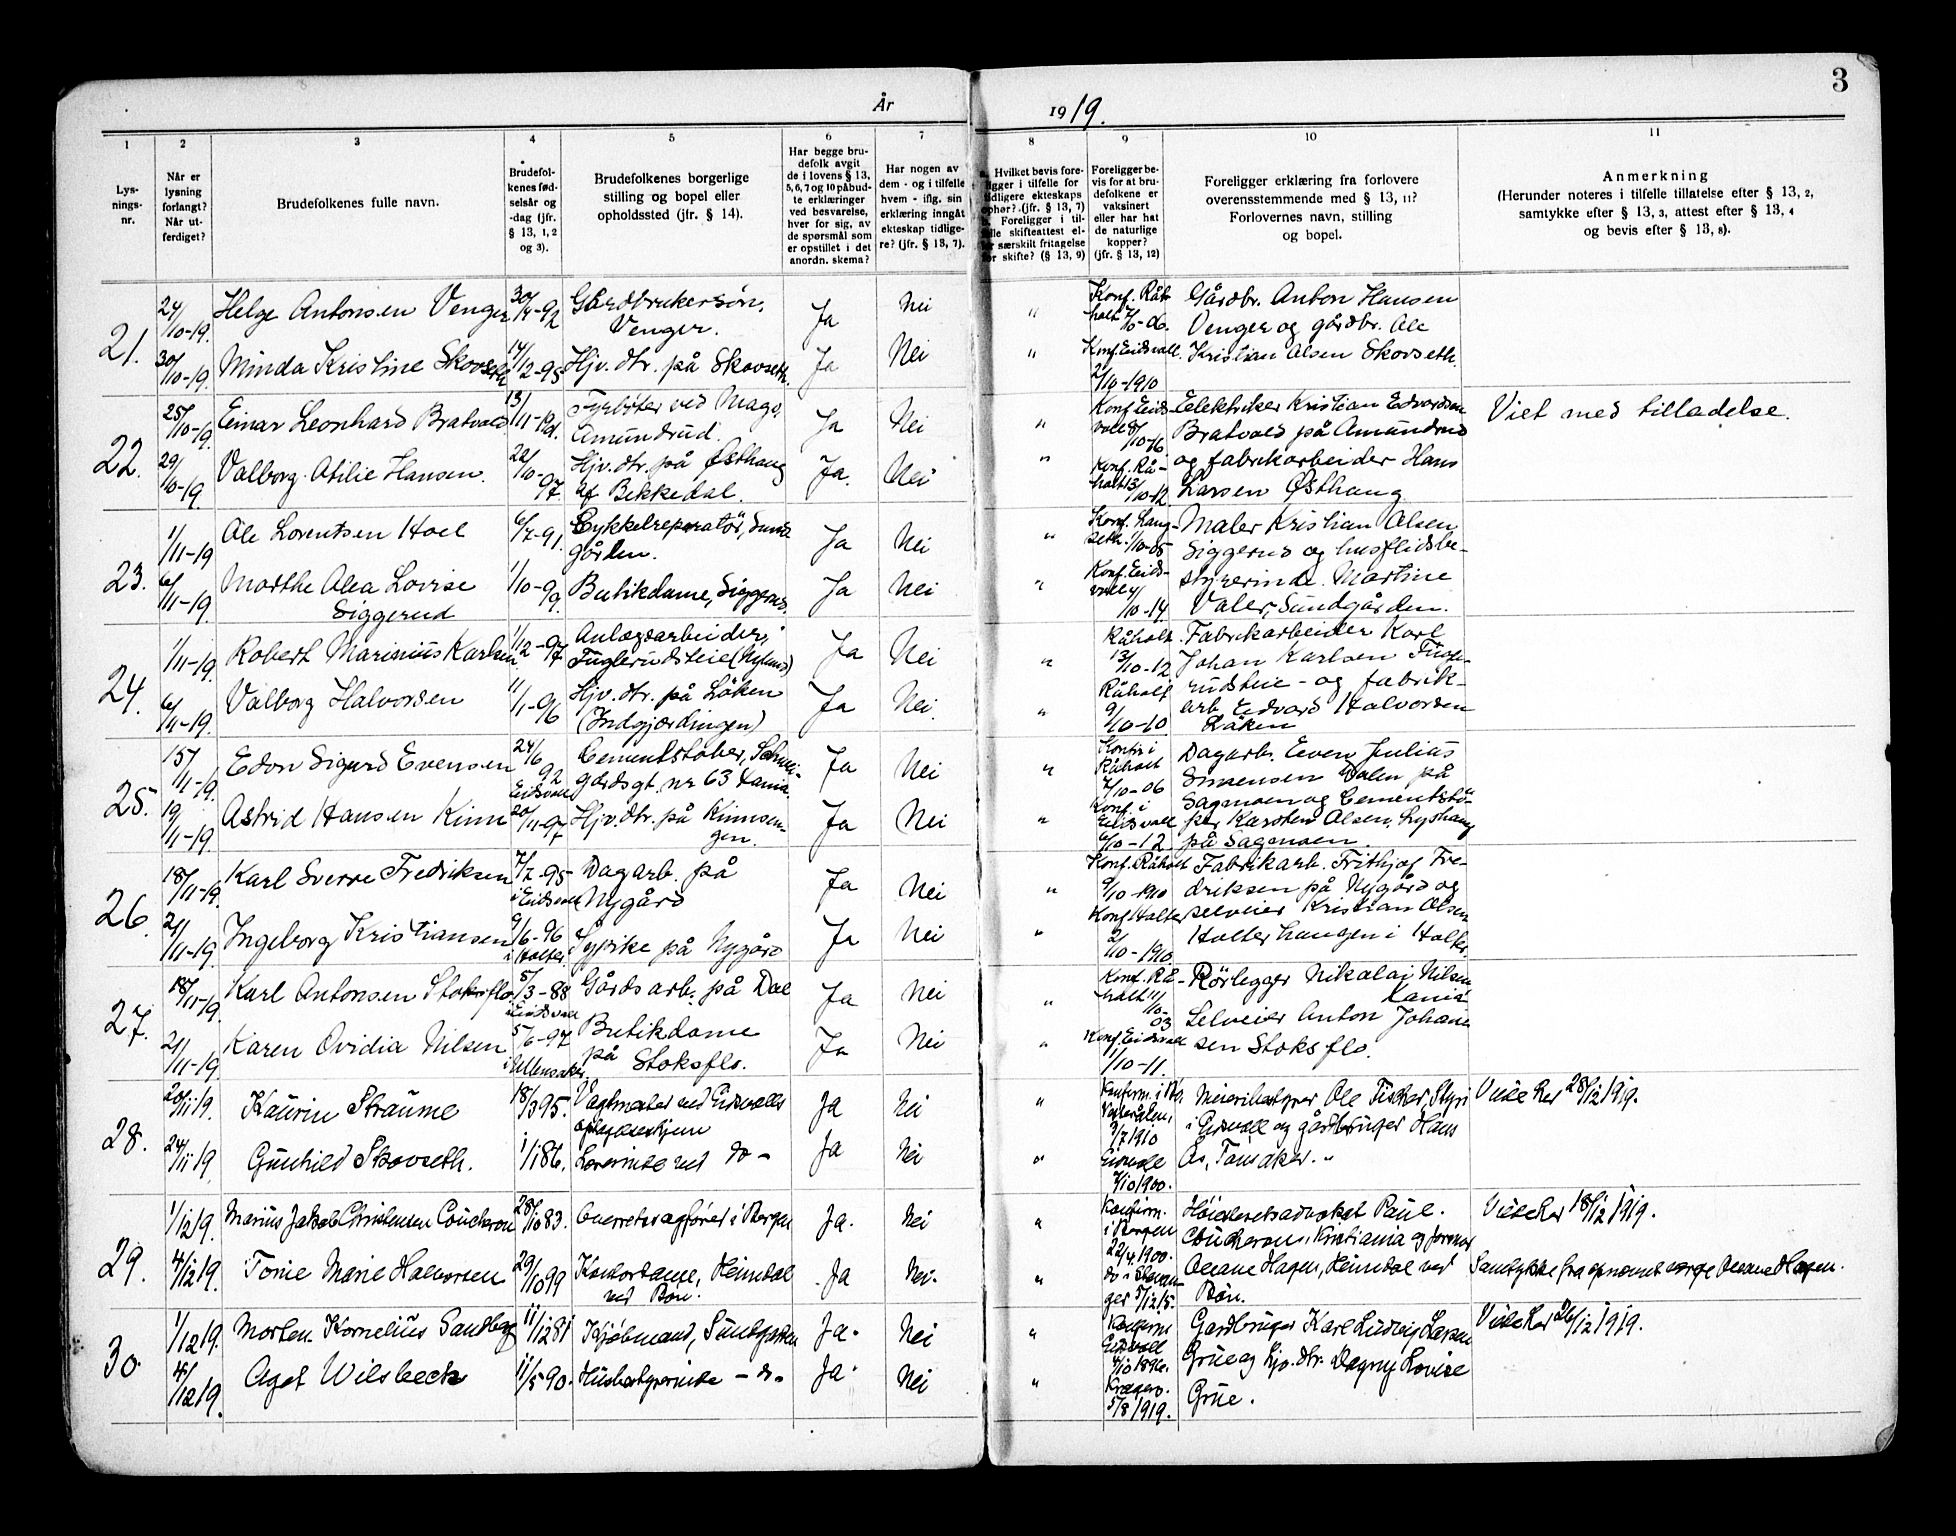 3
År
1919.
1
2
3
4
5
6
7
8
9
10
11
Lys-
nings-
nr.
Når er
lysning
forlangt?
Når ut-
ferdiget?
Brudefolkenes fulle navn.
Brudefol-
kenes fød-
selsår og
-dag (jfr.
§ 13, 1, 2
og 3).
Brudefolkenes borgerlige
stilling og bopel eller
opholdssted (jfr. § 14).
Har begge bru-
defolk avgit
de i lovens § 13,
5, 6, 7 og 10 påbud-
te erklæringer
ved besvarelse,
hver for sig, av
de spørsmål som
er opstillet i det
anordn. skema?
Har nogen av
dem - og i tilfelle
hvem - iflg. sin
erklæring inngåt
ekteskap tidlige-
re? (jfr. § 13, 7).
a. Hvilket bevis fore-
ligger i tilfelle for
tidligere ekteskaps
ophør? (jfr. § 13, 7)
b. Foreligger i til-
felle skifteattest el-
ler særskilt fritagelse
for skifte? (§ 13, 9)
Foreligger be-
vis for at bru-
defolkene er
vaksinert
eller har hat
de naturlige
kopper?
(jfr. § 13, 12)
Foreligger erklæring fra forlovere
overensstemmende med § 13, 11?
Forlovernes navn, stilling
og bopel.
Anmerkning
(Herunder noteres i tilfelle tillatelse efter § 13, 2,
samtykke efter § 13, 3, attest efter § 13, 4
og bevis efter § 13, 8).
21.
24/10-19.
Helge Antonsen Venger
30/4-92
Gårdbrukersøn,
Venger.
Ja
Nei
"
Konf. Råholt 7/10-06.
Gårdbr. Anton Hansen
Venger og gårdbr. Ole
30/10-19.
Minda Kristine Skovseth
14/12-95
Hjv. dtr. på Skovseth.
Ja
Nei
"
Konf. Eidsvoll.
2/10-1910
Kristian Olsen Skovseth.
22.
25/10-19.
Einar Leonhard Bratvold
13/11-
Fyrbøter ved Mago,
Amundrud.
Ja
Nei
"
Konf. Eids-
voll 8/10-16
Elektriker Kristian Edvardsen
Bratvold på Amundrud
Viet med tilladelse.
29/10-19.
Valborg Otilie Hansen.
22/10-97
Hjv. dtr. på Østhaug
af Bekkedal.
Ja.
Nei
"
Konf. Rå-
holt 13/10-12
og fabrikarbeider Hans
Larsen Østhaug
23.
1/11-19
Ole Lorentsen Hoel
6/7-91.
Cykkelreparatör, Sund-
gården.
Ja
Nei
"
Konf. Lang-
seth. 1/10-05
Maler Kristian Olsen
Siggerud og husflidsbe-
6/11-19.
Marthe Olea Lovise
Siggerud
1/10-99.
Butikdame, Siggerud.
Ja
Nei
"
Konf. Eids-
voll 4/10-14
styrerinde Martine
Valer, Sundgården.
24.
1/11-19.
Robert Marinius Karlsen
1/12-97
Anlægsarbeider,
Fuglerudsteie (Nylund)
Ja
Nei
"
Råholt
13/10-12
Fabrikarbeider Karl
Johan Karlsen Fugle-
6/11-19.
Valborg Halvorsen
11/1-96
Hjv. dtr. på Löken
(Indgjærdingen)
Ja
Nei.
"
Råholt
9/10-10
rudsteie - og fabrik-
arb. Edvard Halvorsen
Löken
25.
15/11-19.
Edon Sigurd Evensen
24/6 92
Eidsvoll
Cementstøber,
gårdsgt. nr 63 Kania.
Ja
Nei
"
Konf. i
Råholt
7/10-06
Dagarb. Even Julius
Simensen Dalen på
19/11-19.
Astrid Hansen Kinn
20/11-97
Hjv. dtr. på Kinnsen-
gen.
Ja
Nei
"
Konf. i
Eidsvoll
6/10-12
Sagmoen og Cementstö-
per Karsten Olsen, Lyshaug
på Sagmoen.
26.
18/11-19.
Karl Sverre Fredriksen
7/7-95
i Eidsvoll
Dagarb. på
Nygård
Ja
Nei
"
Konf. Råholt
9/10-1910
Fabrikarb. Frithjof Fre-
driksen på Nygård og
21/11-19.
Ingeborg Kristiansen
9/6-96
i Holter
Sypike på Nygård
Ja
Nei
"
Konf. Holter
2/10-1910
selveier Kristian Olsen
Holterhaugen i Holter.
27.
18/11-19.
Karl Antonsen Stoksflo.
8/3-88
i Eidsvoll
Gårdsarb. på Dal
Ja
Nei
"
Konf. Rå-
holt 11/10-03
Rörlegger Nikolai Nilsen
Kania
21/11-19
Karen Ovidia Nilsen
5/6-97
i Ullensaker.
Butikdame
på Stoksflo.
Ja
Nei
"
Konf. Eidsvoll
1/10-11.
Selveier Anton Johan-
sen Stoksflo.
28.
20/11 19.
Kaurin Straume
18/3 95.
Vagtmester ved Eidsvolls
Ja
Nei
"
Konfirm. i
9/7 1910
Meieribestyrer Ole Fisker, Styri
i Eidsvoll og gårdbruger Hans
Viede her 28/12 1919.
24/11 19
Gunhild Skovseth.
1/1 86.
Lærerinde ved do -
Ja
Nei
"
Eidsvoll
7/10 1900.
Ås, Tønsaker.
29.
1/12 19.
Marius Jakob Christensen Coucheron
28/10 83.
Overretssagfører i Bergen
Ja.
Nei
"
Konfirm.
i Bergen
22/4 1900.
Høiesteretsadvokat Paul
Coucheron, Kristiania og
Viede her 18/12 1919.
4/12 19.
Tonie Marie Halvorsen
29/10 99
Kontordame, Heimdal
ved Bøn.
Ja
Nei.
"
do i Stavan-
ger 5/12 15.
Oleane Hagen, Heimdal ved
Bøn.
Samtykke fra opnævnt verge Oleane Hagen.
30.
1/12 19.
Morten Kornelius Sandberg
11/12 81
Kjøbmand, Sundgaarden
Ja.
Nei
"
Konfirm
Eidsvoll
4/10 1896.
Gardbruger Karl Ludvig Larsen
Grue og hjv. dtr. Dagny Lovise
Viede her 26/12 1919.
4/12 19.
Agot Wilsbeck
11/5 90.
Husbestyrerinde - do
Ja.
Nei
"
Kragerø.
5/8 1919.
Grue.